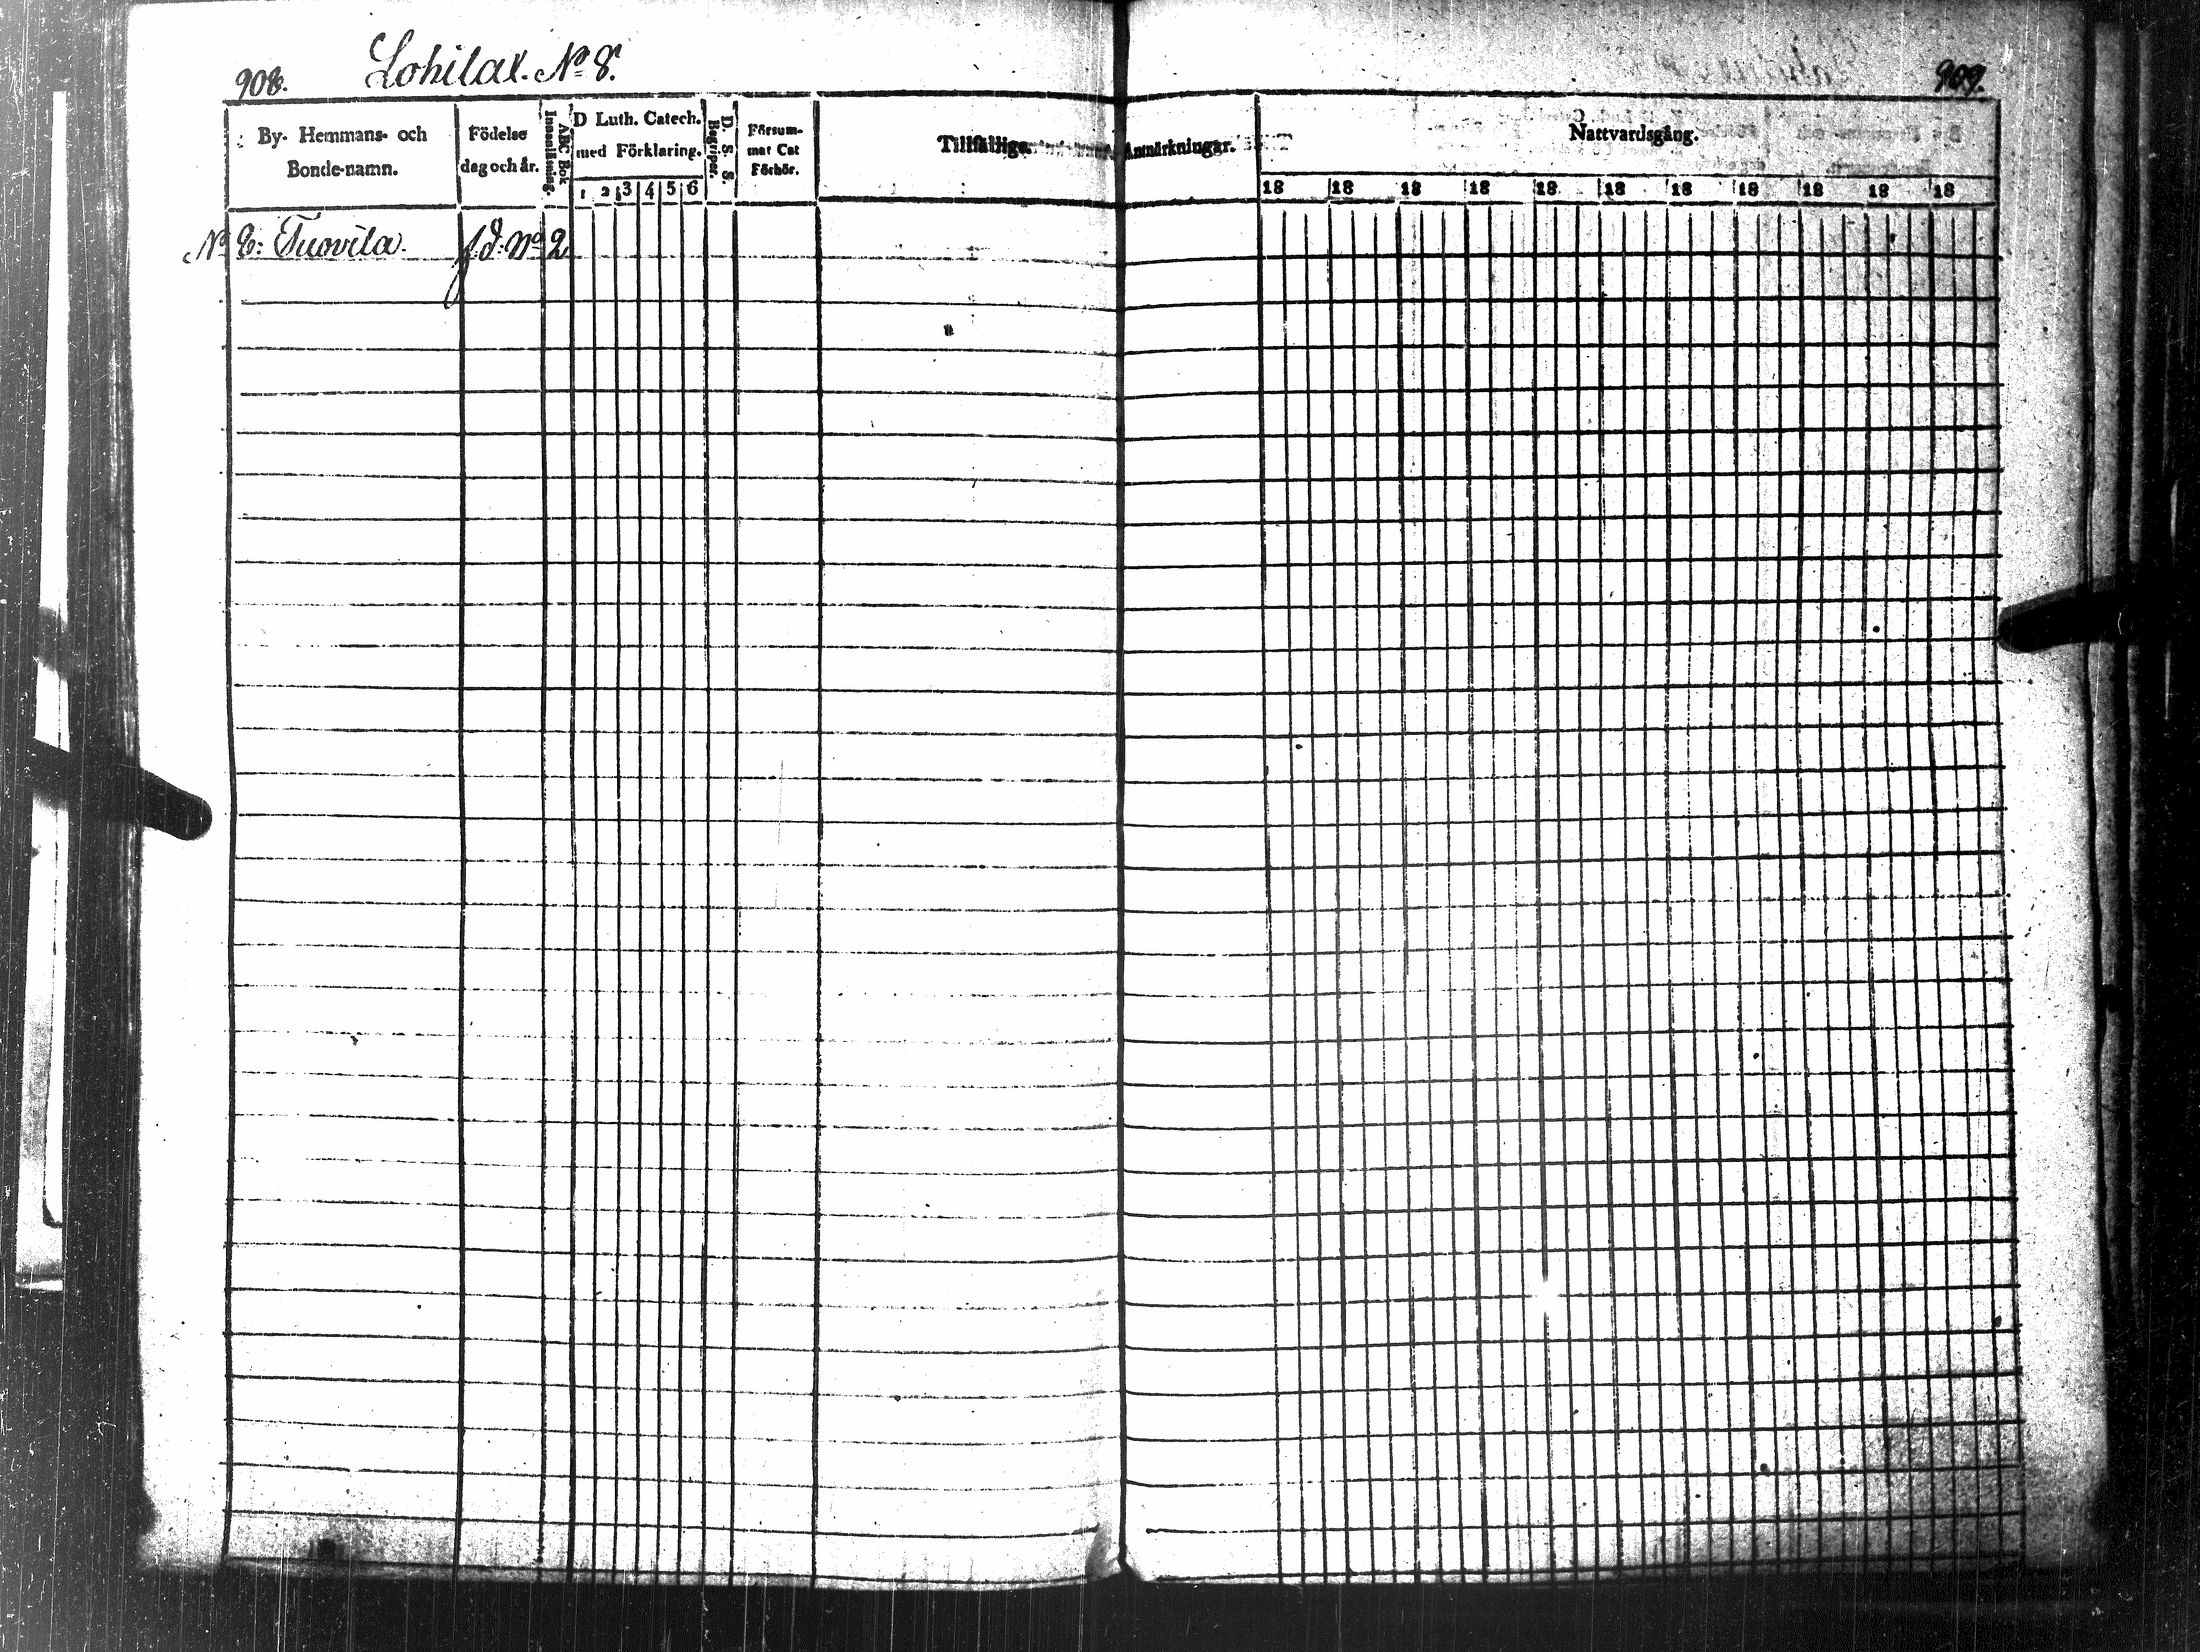 908.
Lohilax. No 8.
909.
By- Hemmans- och
Bonde-namn.
Födelse
dag och år.
ABC Bok
Innanläsning.
D Luth. Catech.
med Förklaring.
1 2 3 4 5 6
D. S. S.
Begriper.
Försum-
mat Cat
Förhör.
Tillfällige Anmärkningar.
Nattvardsgång.
18 18 18 18 18 18 18 18 18 18 18
No 8: Tuovila. f.d. No 2